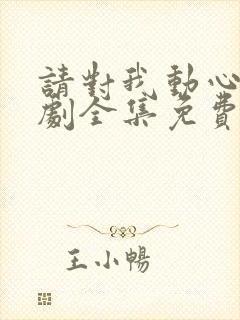 請對我動心
劇全集免費
王小暢